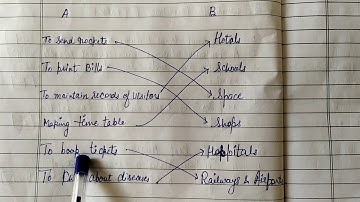 A B
To send rockets Hotals
To print Bills Schools
To maintain records of visitors Space
Making time table Shops
To book tickets Hospitals
To about diseases Railways & Airports